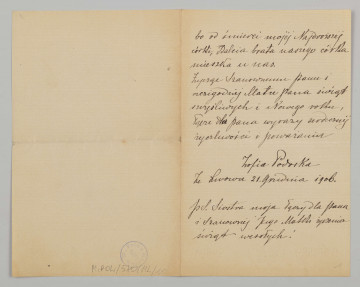 bo od śmierci mojej Najdroższej
córki, Dalcia brata naszego córka
mieszka u nas.
Życzę Szanownemu panu i
czcigodnej Matce pana świąt
szczęśliwych i Nowego roku,
łączę dla pana wyrazy
życzliwości i poważania
Zofia Podoska
Ze Lwowa 21 Grudnia 1906.
p.S. Siostra moja łączy dla pana
i Szanownej Jego Matki życzenia
świąt wesołych!